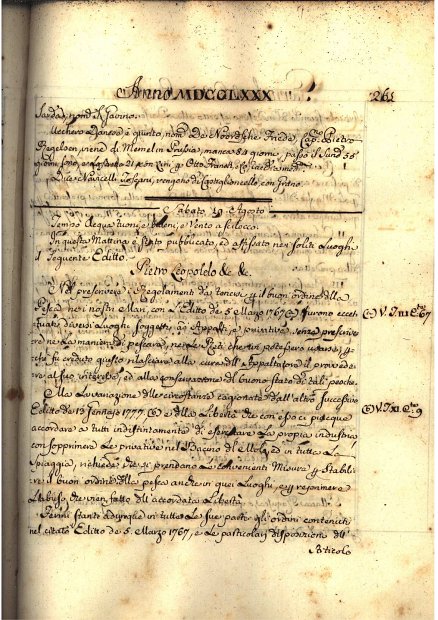 Anno MDCCLXXX. 261
Sardo, nom.
è giunto, nom. De Noordsche Frede, Cap. Pietro
viene di Memel in Prussia, manca 84 giorni, passò il Sund 55
giorni sono, e
Due Navicelli Toscani, vengono di Castiglioncello con Grano.
Sabato 19. Agosto.
Tempo d'acqua tuoni, e baleni, e Vento a Scilocco.
In questa Mattina è stato pubblicato, ed affissato nei soliti Luoghi
il seguente Editto.
Pietro Leopoldo &c. &c.
Nel prescrivere i Regolamenti da tenersi per il buon ordine della
Pesca nei nostri Mari, con l'Editto de 5 Marzo 1767 furono eccet-
tuati diversi Luoghi soggetti ad Appalti, e privative senza prescrive-
re nè la maniera di pescare, nè le Reti che vi potessero usarsi, per-
chè fù creduto giusto rilasciare alla cura dell'Appaltatore il provvede-
re al suo interesse, ed alla conservazione del buono stato di tali pesche.
Ma la variazione delle circostanze cagionata dall'altro successivo
Editto de 13 Gennajo 1777. e della Libertà che con esso ci piacque
accordare a tutti indistintamente di esercitare la propria industria
con sopprimere le privative nel Bacino del Molo, ed in tutta la
Spiaggia, richiede che si prendano le convenienti Misure per Stabili-
re il buon ordine della pesca anche in quei Luoghi, e per reprimere
l'abuso, che vien fatto dell'accordata Libertà.
Fermi stanti adunque in tutte le sue parti gli ordini contenuti
nel citato Editto de 5. Marzo 1767, e le particolari disposizioni dell'
Articolo
V. T. VII. 67
V. T. XI. 9